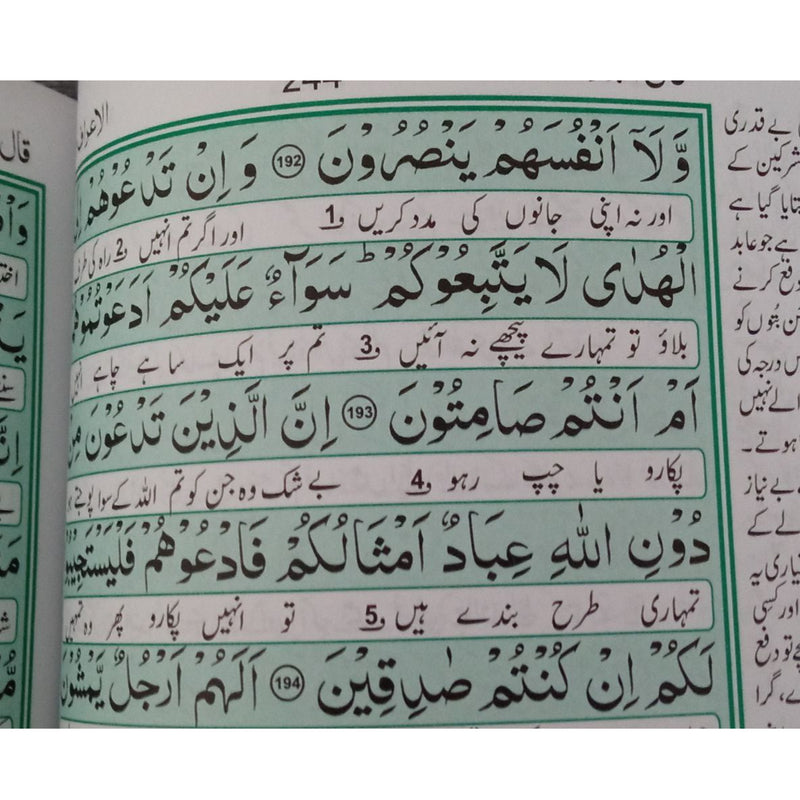 244
وَّلَاۤ اَنْفُسَهُمْ يَنْصُرُوْنَ ﴿192﴾ وَ اِنْ تَدْعُوْهُمْ
اور نہ اپنی جانوں کی مدد کریں 1 اور اگر تم انہیں 2 راہ کی طرف
الْهُدٰى لَا يَتَّبِعُوْكُمْ ؕ سَوَآءٌ عَلَيْكُمْ اَدَعَوْتُمُوْهُمْ
بلاؤ تو تمہارے پیچھے نہ آئیں 3 تم پر ایک سا ہے چاہے انہیں
اَمْ اَنْتُمْ صَامِتُوْنَ ﴿193﴾ اِنَّ الَّذِيْنَ تَدْعُوْنَ مِنْ
پکارو یا چپ رہو 4 بے شک وہ جن کو تم اللہ کے سوا پوجتے ہو
دُوْنِ اللّٰهِ عِبَادٌ اَمْثَالُكُمْ فَادْعُوْهُمْ فَلْيَسْتَجِيْبُوْا
تمہاری طرح بندے ہیں 5 تو انہیں پکارو پھر وہ تمہیں
لَكُمْ اِنْ كُنْتُمْ صٰدِقِيْنَ ﴿194﴾ اَلَهُمْ اَرْجُلٌ يَّمْشُوْنَ
بے قدری
مشرکین کے
بتایا گیا ہے
ہے جو عابد
دفع کرنے
بتوں کو
درجہ کی
نہیں
ہوتے۔
بے نیاز
کے
یہ
اور کسی
تو دفع
گرا